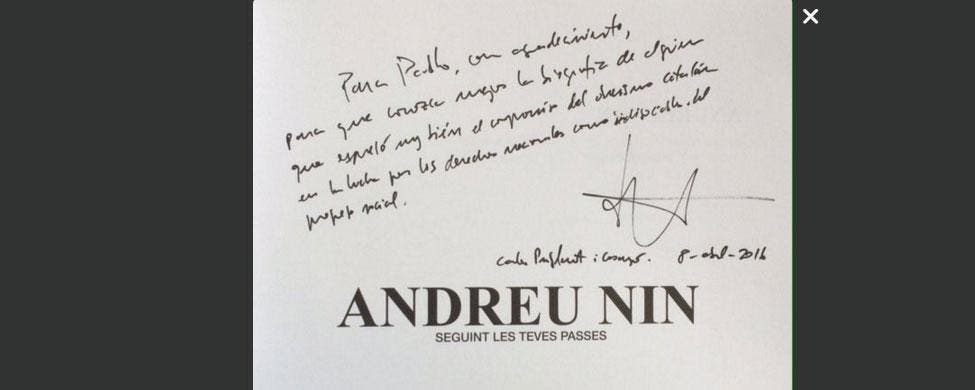 Para Pablo, con agradecimiento,
para que conozca mejor la biografía de alguien
que expresó muy bién el compromiso del obrerismo catalán
en la lucha por los derechos nacionales como indisociable del
progreso social.
Carles Puigdemont i Casamajó. 8-abril-2016
ANDREU NIN
SEGUINT LES TEVES PASSES